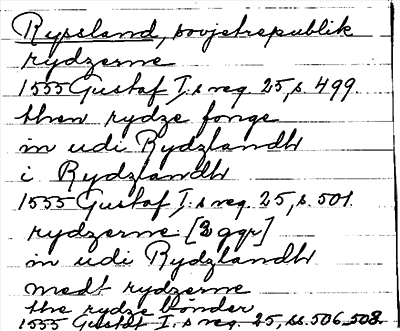 Ryssland, sovjetrepublik
rydzerne
1555 Gustaf I:s reg. 25, s. 499.
then rydze fonge
in udi Rydzlandh
i Rydzlandh
1555 Gustaf I:s reg. 25, s. 501.
rydzerne [2 ggr]
in udi Rydzlandh
medt rydzerne
the rydze bönder
1555 Gustaf I:s reg. 25, ss. 506, 508.